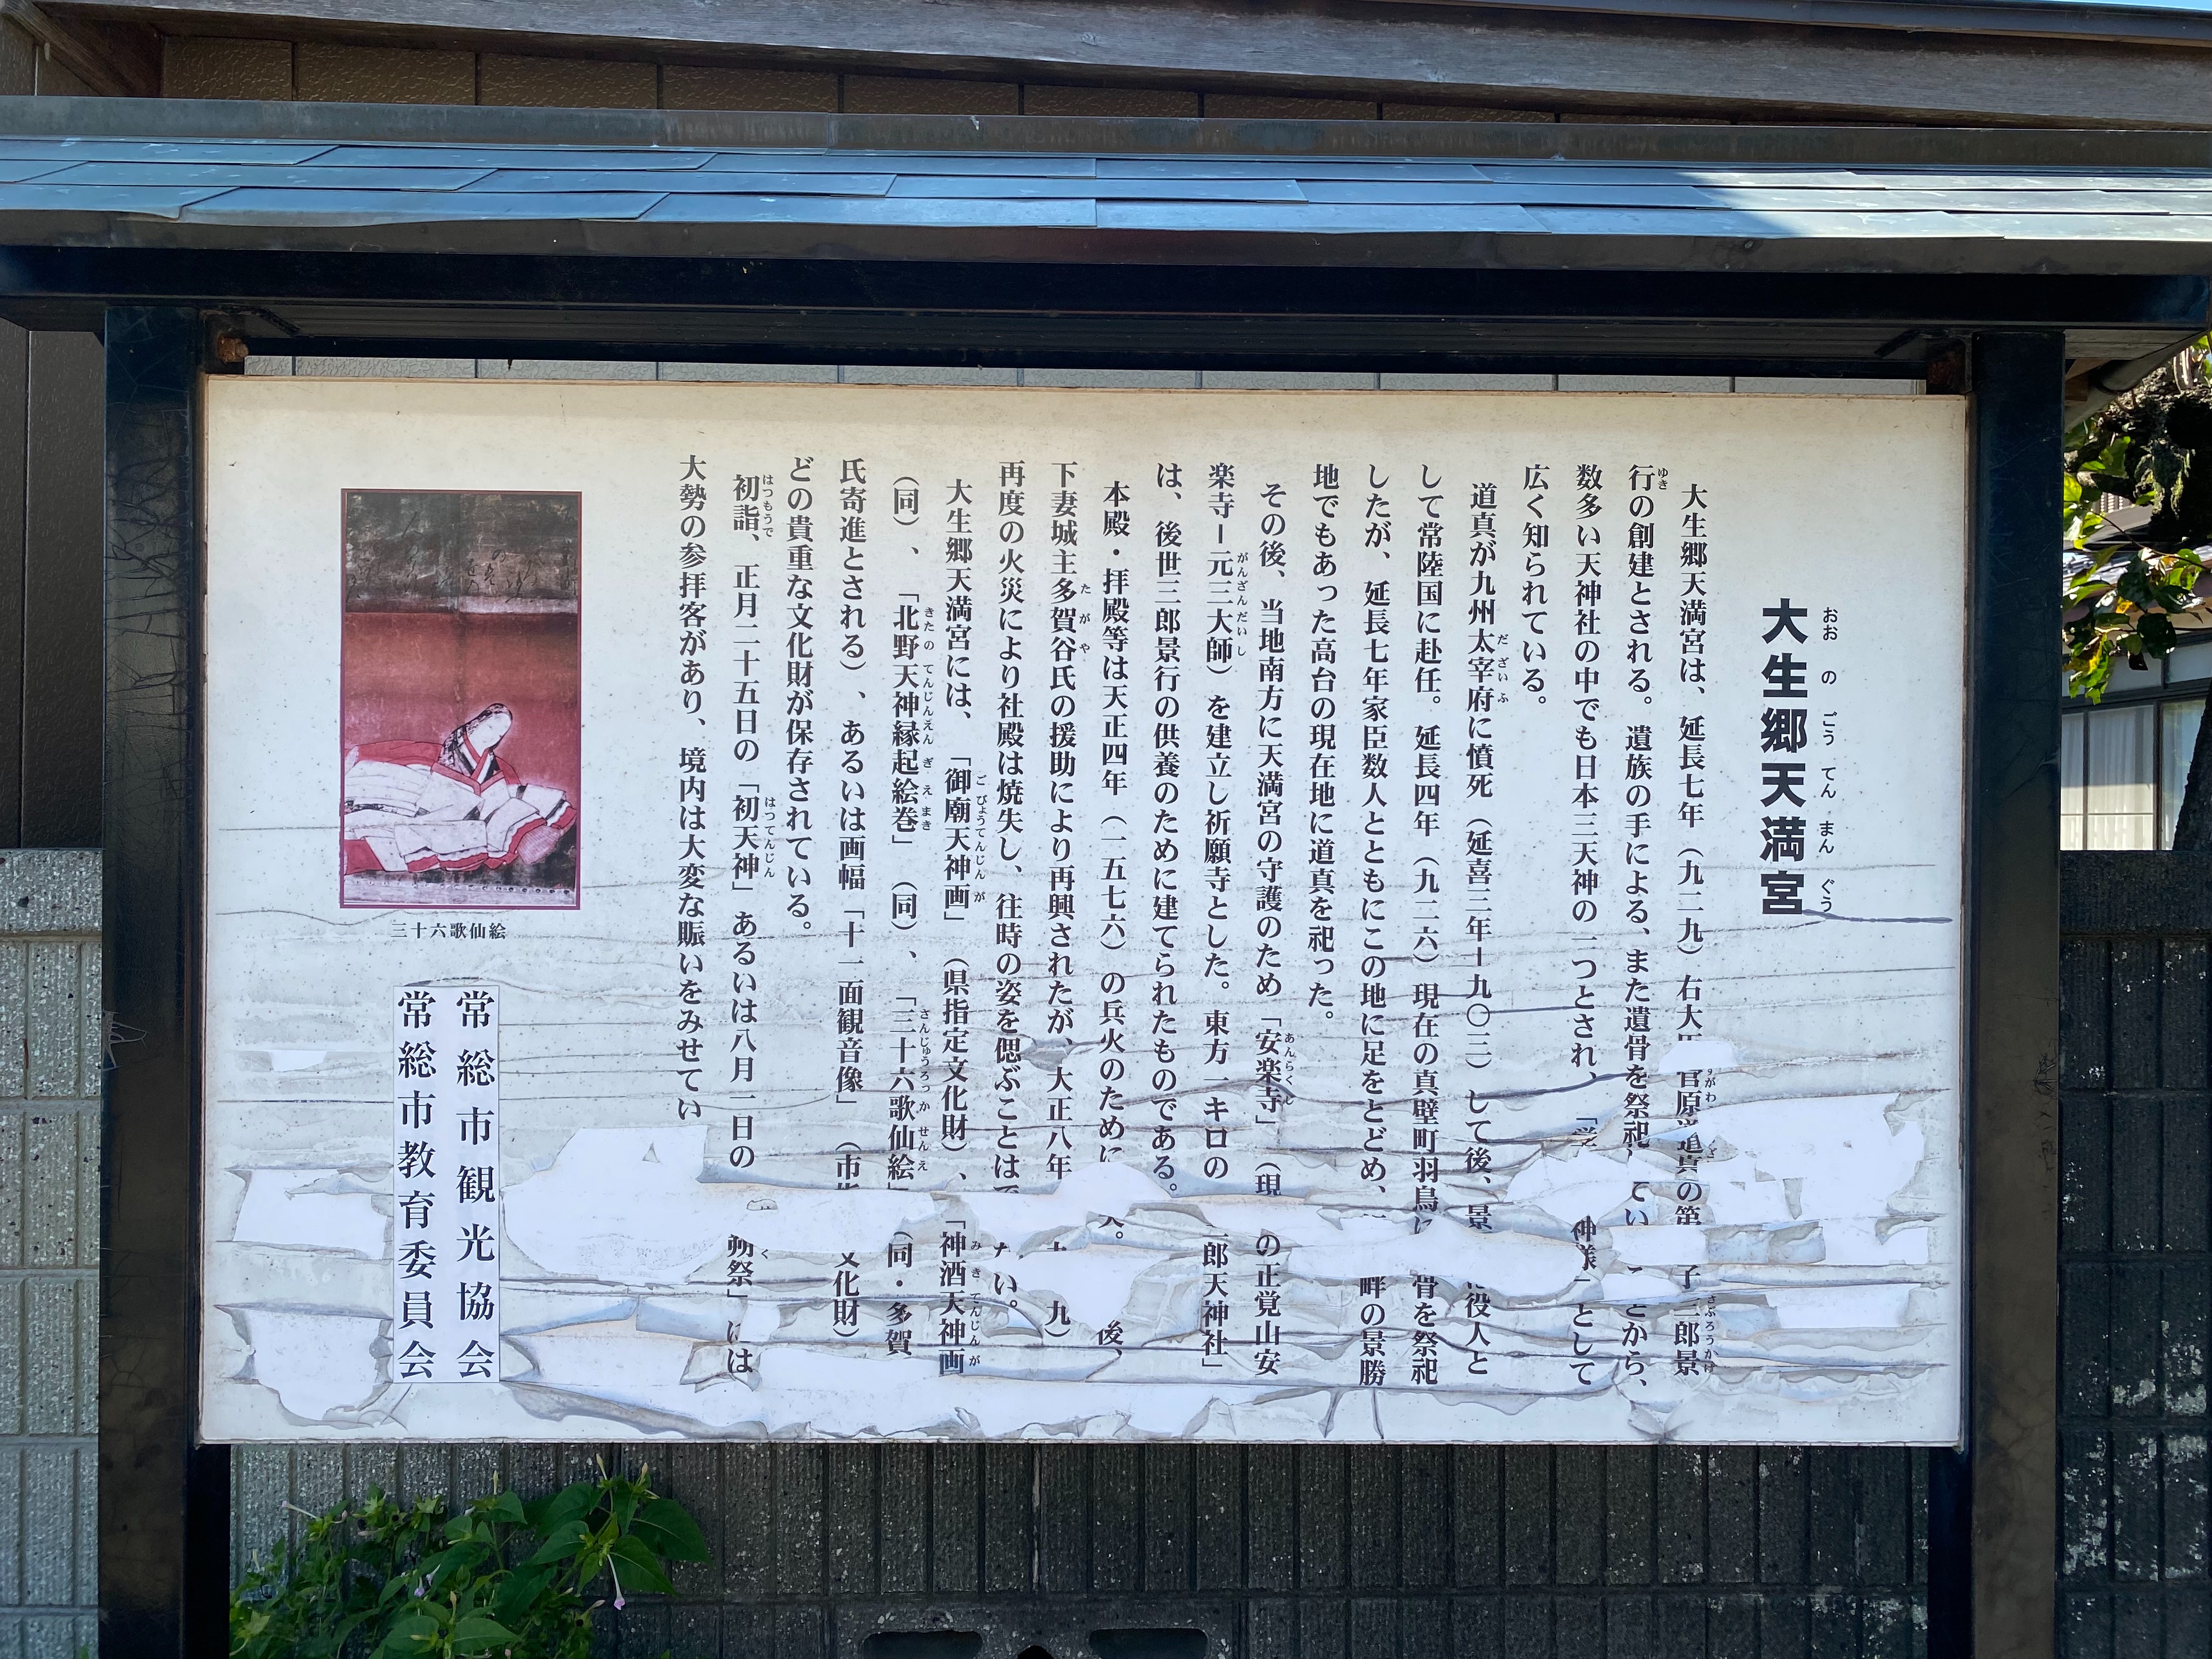 大生郷天満宮
おおのごうてんまんぐう
大生郷天満宮は、延長七年（九二九）右大 原道真の第 子三郎景
行の創建とされる。遺族の手による、また遺骨を祭祀 てい とから、
数多い天神社の中でも日本三天神の一つとされ、「 神様」として
広く知られている。
道真が九州太宰府に憤死（延喜三年ー九〇三）して後、景 役人と
して常陸国に赴任。延長四年（九二六）現在の真壁町羽鳥に 骨を祭祀
したが、延長七年家臣数人とともにこの地に足をとどめ、 畔の景勝
地でもあった高台の現在地に道真を祀った。
その後、当地南方に天満宮の守護のため「安楽寺」（現 の正覚山安
楽寺ー元三大師）を建立し祈願寺とした。東方一キロの 郎天神社」
は、後世三郎景行の供養のために建てられたものである。
本殿・拝殿等は天正四年（一五七六）の兵火のために 。 後、
下妻城主多賀谷氏の援助により再興されたが、大正八年 九）
再度の火災により社殿は焼失し、往時の姿を偲ぶことは い。
大生郷天満宮には、「御廟天神画」（県指定文化財）、「神酒天神画」
（同）、「北野天神縁起絵巻」（同）、「三十六歌仙絵」（同・多賀
氏寄進とされる）、あるいは画幅「十一面観音像」（市 文化財）
どの貴重な文化財が保存されている。
初詣、正月二十五日の「初天神」あるいは八月一日の 祭」には
大勢の参拝客があり、境内は大変な賑いをみせてい
三十六歌仙絵
常総市観光協会
常総市教育委員会